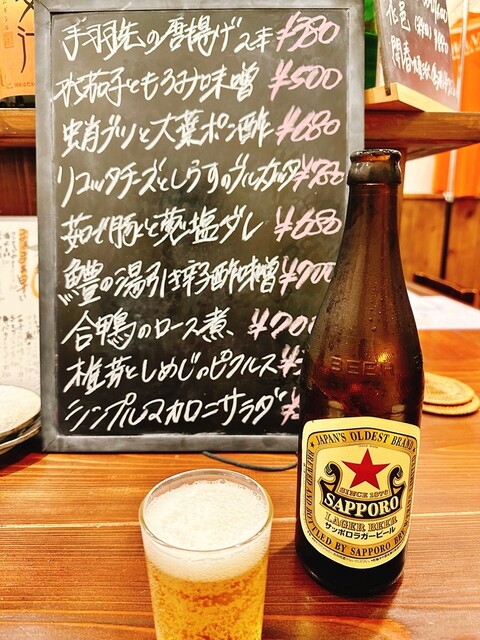 手羽先の唐揚げ2本 ¥380
水茄子ともろみ味噌 ¥500
蛸ブツと大葉ポン酢 ¥680
リコッタチーズとしらすのブルスケッタ ¥780
茹で豚と葱塩ダレ ¥680
鱧の湯引き 辛子酢味噌 ¥900
合鴨のロース煮 ¥700
椎茸としめじのピクルス ¥
シンプルマカロニサラダ ¥
BEER
JAPAN'S OLDEST BRAND
SINCE 1876
SAPPORO
LAGER BEER
サッポロラガービール
BREWED AND BOTTLED BY SAPPORO